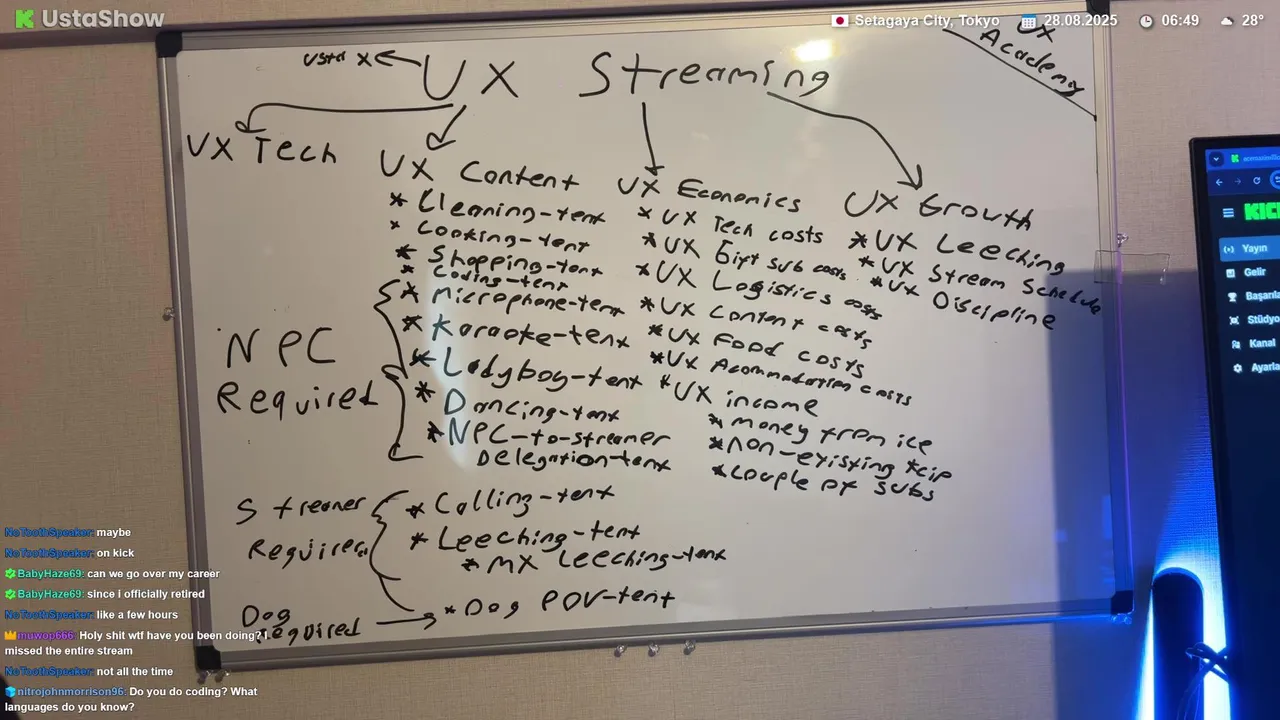 UstaShow
Setagaya City, Tokyo
28.08.2025
06:49
28°
UX
Academy
Usta X
UX Streaming
UX Tech
UX Content
* Cleaning-tent
* Cooking-tent
* Shopping-tent
* Coding-tent
* Microphone-tent
* Karaoke-tent
* Ladyboy-tent
* Dancing-tent
* NPC-to-streamer
Delegation-tent
NPC
Required
Streamer
Required
* Calling-tent
* Leeching-tent
* MX Leeching-tent
Dog
Required
* Dog POV-tent
UX Economics
* UX Tech costs
* UX Gift sub costs
* UX Logistics costs
* UX Content costs
* UX Food costs
* UX Acommodation costs
* UX income
* money from ice
* non-existing tcip
* couple of subs
UX Growth
* UX Leeching
* UX Stream Schedule
* UX Discipline
KICK
Yayın
Gelir
Başarıla
Stüdyo
Kanal
Ayarla
NoToothSpeaker: maybe
NoToothSpeaker: on kick
BabyHaze69: can we go over my career
BabyHaze69: since i officially retired
NoToothSpeaker: like a few hours
muwop666: Holy shit wtf have you been doing? I
missed the entire stream
NoToothSpeaker: not all the time
nitrojohnmorrison96: Do you do coding? What
languages do you know?